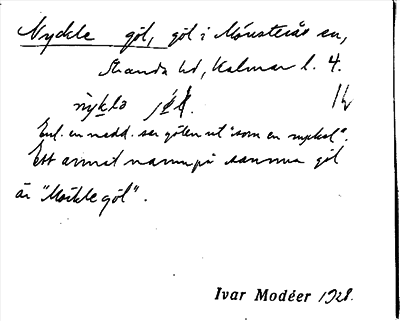 Nyckle göl, göl i Mönsterås sn,
Stranda hd, Kalmar l. 4.
nyklə
Enl. en medd. ser gölen ut "som en nyckel".
Ett annat namn på samma göl
är "Möckle göl".
Ivar Modéer 1928.